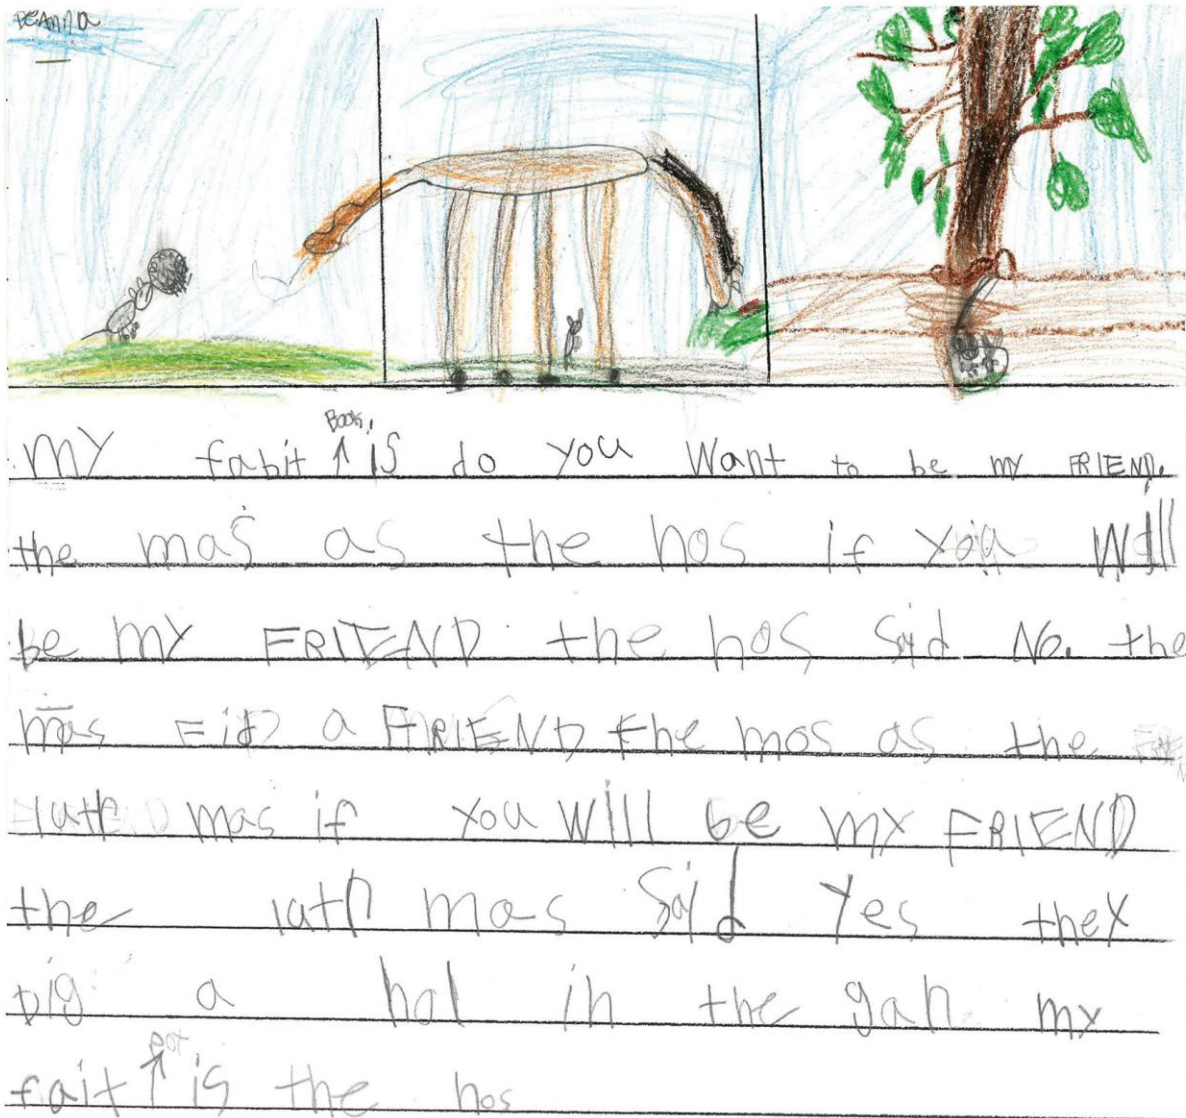 DEANNA
Book!
MY fabit ↑ is do you Want to be my FRIEND.
the mas as the hos if you Will
be my FRIEND. the hos Said No. the
mas Fid a FRIEND the mos as the
lath mas if you Will be my FRIEND
the lath mas Said Yes they
Dig a hol in the gan my
pot
fait ↑ is the hos